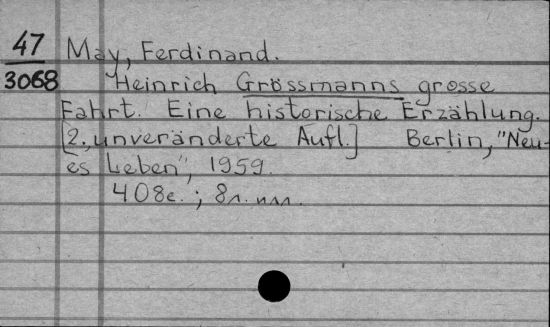 47
3068
May, Ferdinand.
Heinrich Grössmanns grosse
Fahrt. Eine historische Erzählung.
[2., unveränderte Aufl.] Berlin, "Neu-
es Leben", 1959.
408с.; 8л. илл.